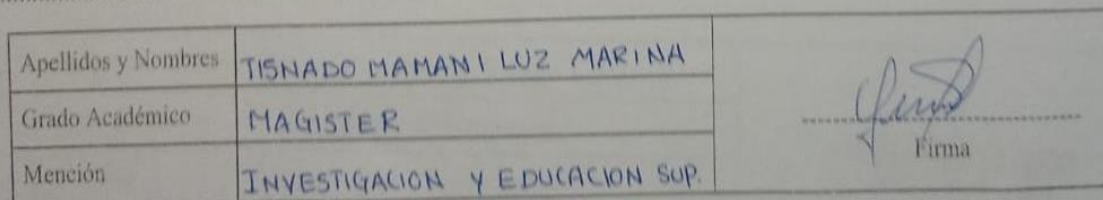 Apellidos y Nombres TISNADO MAMANI LUZ MARINA
Grado Académico MAGISTER
Mención INVESTIGACION Y EDUCACION SUP.
Firma